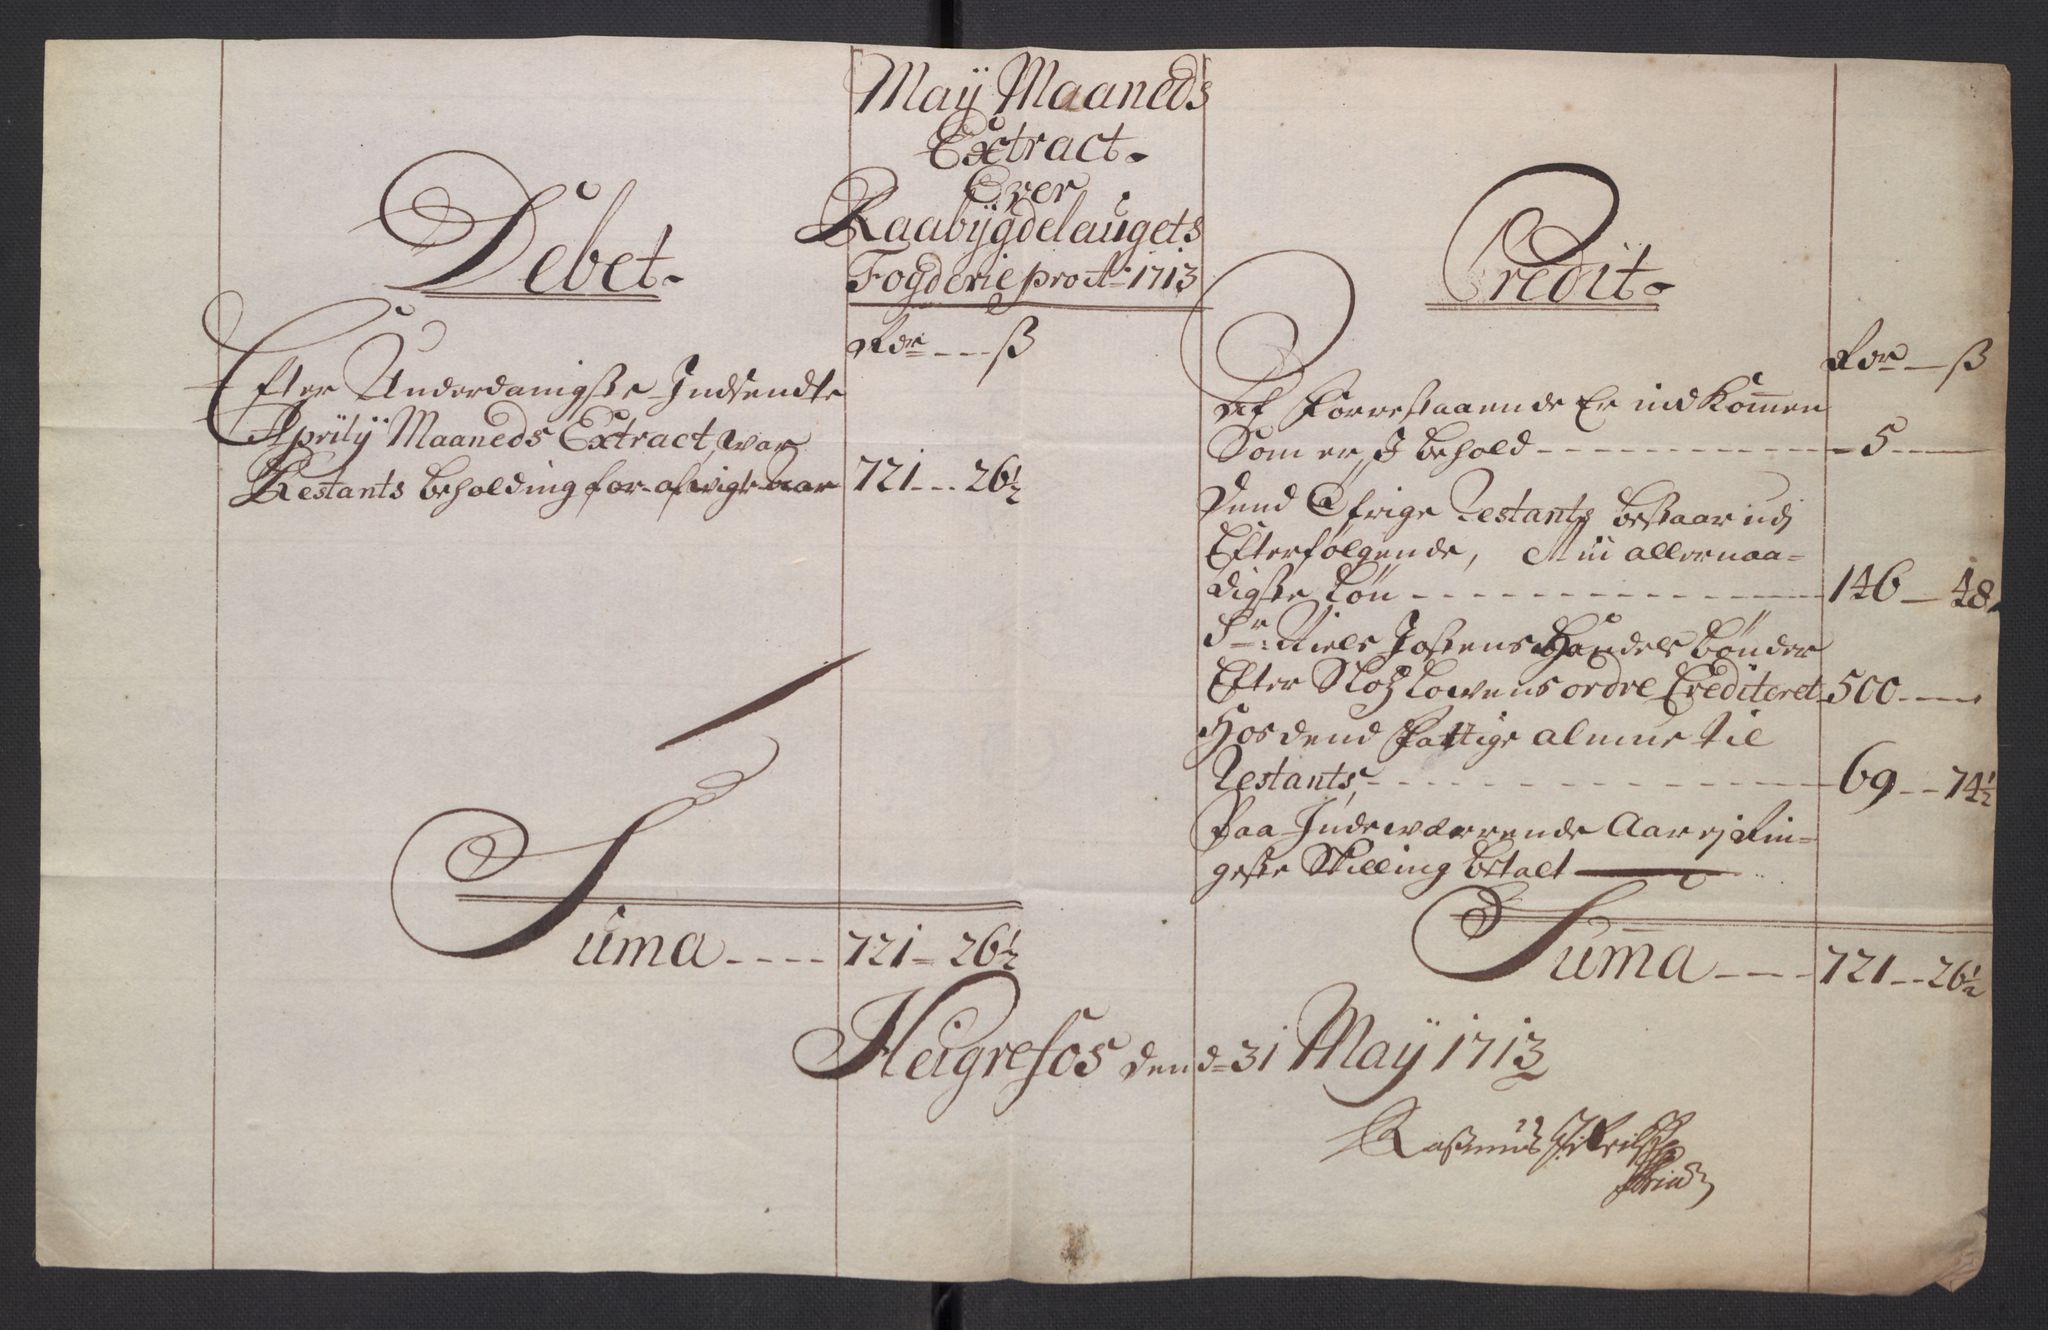 Maÿ Maaneds
Extract.
Over
Raabÿgdelaugets
Fogderie pro Ao 1713
Debet.
Rdr --- ß
Efter Underdanigste Indsendte
Aprilÿ Maaneds Extract, war
Restants beholding for afwigte Aar 721 --- 26½
Suma ---- 721 - 26½
Credit.
Rdr --- ß
Af Forrestaaende Er ind Kommen
Som er J behold - 5 -
Dend Øfrige Restants bestaar udj
Efterfølgende, Min allernaa-
digste Løn - 146 - 48
Sr: Niels Jossens Handels bønder
Efter Slotz Lowens ordre Crediteret 500 ---
Hos dend Fattige almue til
Restants, - 69 -- 74½
Paa Indewærrende Aar ej Rin-
geste Skilling betalt
Suma --- 721 -- 26½
Heigrefos dend 31 Maÿ 1713
Rasmus